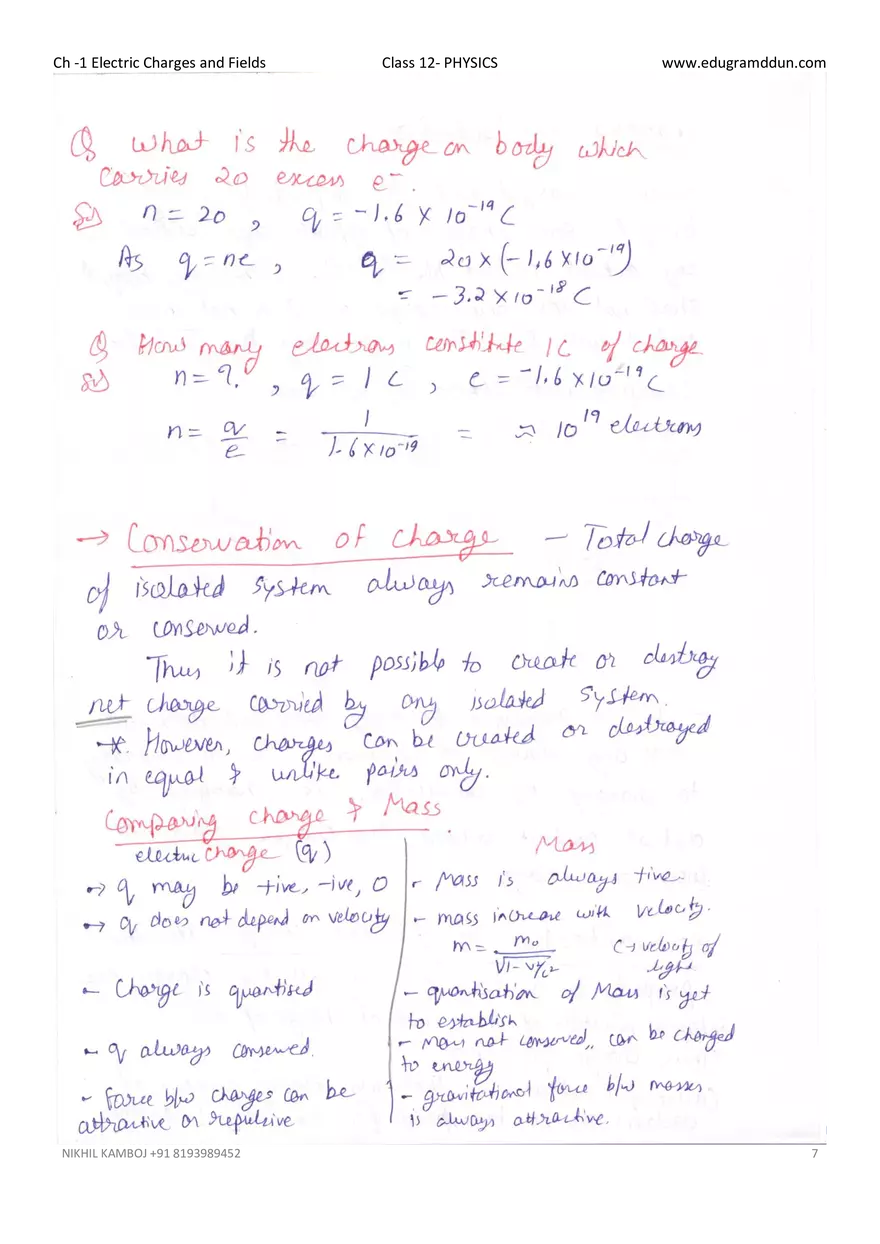 Ch -1 Electric Charges and Fields Class 12- PHYSICS www.edugramddun.com
Q What is the charge on body which
carries 20 excess e⁻.
Sol n = 20 , q = -1.6 X 10⁻¹⁹ C
As q = ne , q = 20 x (-1.6 X10⁻¹⁹)
= -3.2 X 10⁻¹⁸ C
Q How many electrons constitute 1C of charge
Sol n = ? , q = 1 C , e = -1.6 X 10⁻¹⁹ C
n = q/e = 1/1.6 X 10⁻¹⁹ = ≈ 10¹⁹ electrons
→ Conservation of charge – Total charge
of isolated system always remains constant
or conserved.
Thus it is not possible to create or destroy
net charge carried by any isolated system.
*. However, charges can be created or destroyed
in equal & unlike pairs only.
Comparing charge & Mass
electric charge (q) Mass
→ q may be +ive, -ive, 0 - Mass is always +ive.
→ q does not depend on velocity - mass increase with velocity.
m = m₀/√1-v²/c² C→ velocity of
light
- Charge is quantised - quantisation of Mass is yet
to establish
- q always conserved. - Mass not conserved,, can be changed
to energy
- force b/w charges can be - gravitational force b/w masses
attractive or repulsive is always attractive.
NIKHIL KAMBOJ +91 8193989452 7